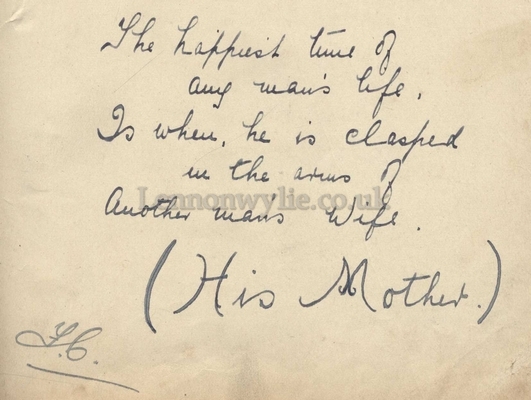 The happiest time of
any man's life,
Is when, he is clasped
in the arms of
Lennonwylie.co.uk
Another man's Wife.
(His Mother.)
F.C.